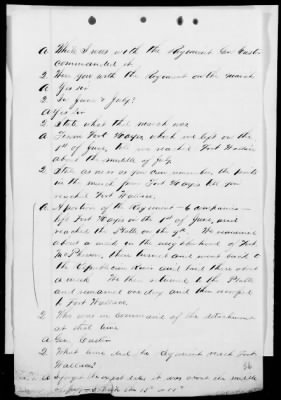 A While I was with the Regiment Gen Custer
commanded it.
Q Were you with the Regiment on the march
A Yes sir
Q In June & July?
A Yes Sir
Q State what that march was
A From Fort Hayes, which we left on the
1st of June, till we reached Fort Wallace
about the middle of July.
Q State as near as you can remember, the points
in the march from Fort Hayes till you
reached Fort Wallace.
A A portion of the Regiment - 6 companies -
left Fort Hayes on the 1st of June, and
reached the Platte on the 9th. We remained
about a week in the neighborhood of Fort
McPherson, then turned and went back to
the Republican River and laid there about
a week. We then returned to the Platte
and remained one day and then marched to
Fort Wallace.
Q Who was in command of the detachment
at that time
A Gen. Custer
Q What time did the Regiment reach Fort
Wallace?
A I forget the exact date, it was about the middle
of July I think the 13th or 14th